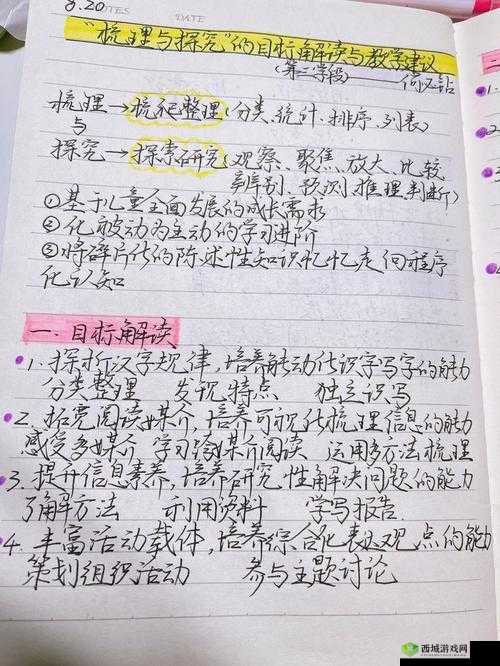 8.20
NOTES
DATE
“梳理与探究”的目标解读与教学建议
(第二学段)
梳理→梳耙整理(分类、统计、排序、列表)
与
探究→探索研究(观察、聚焦、放大、比较
辨别、预测、推理判断)
①基于儿童全面发展的成长需求
②化被动为主动的学习进阶
③将碎片化的陈述性知识忆忆走向程序
化认知
一.目标解读
1.探析汉字规律,培养能动化识字写字的能力
分类整理 发现特点 独立识写
2.拓宽阅读媒介,培养可视化梳理信息的能力
感受多媒介 学习跨媒介阅读 运用多方法梳理
3.提升信息素养,培养研究性解决问题的能力
了解方法 利用资料 学写报告
4.丰富活动载体,培养综合化表达观点的能力
策划组织活动 参与主题讨论
西城游戏网